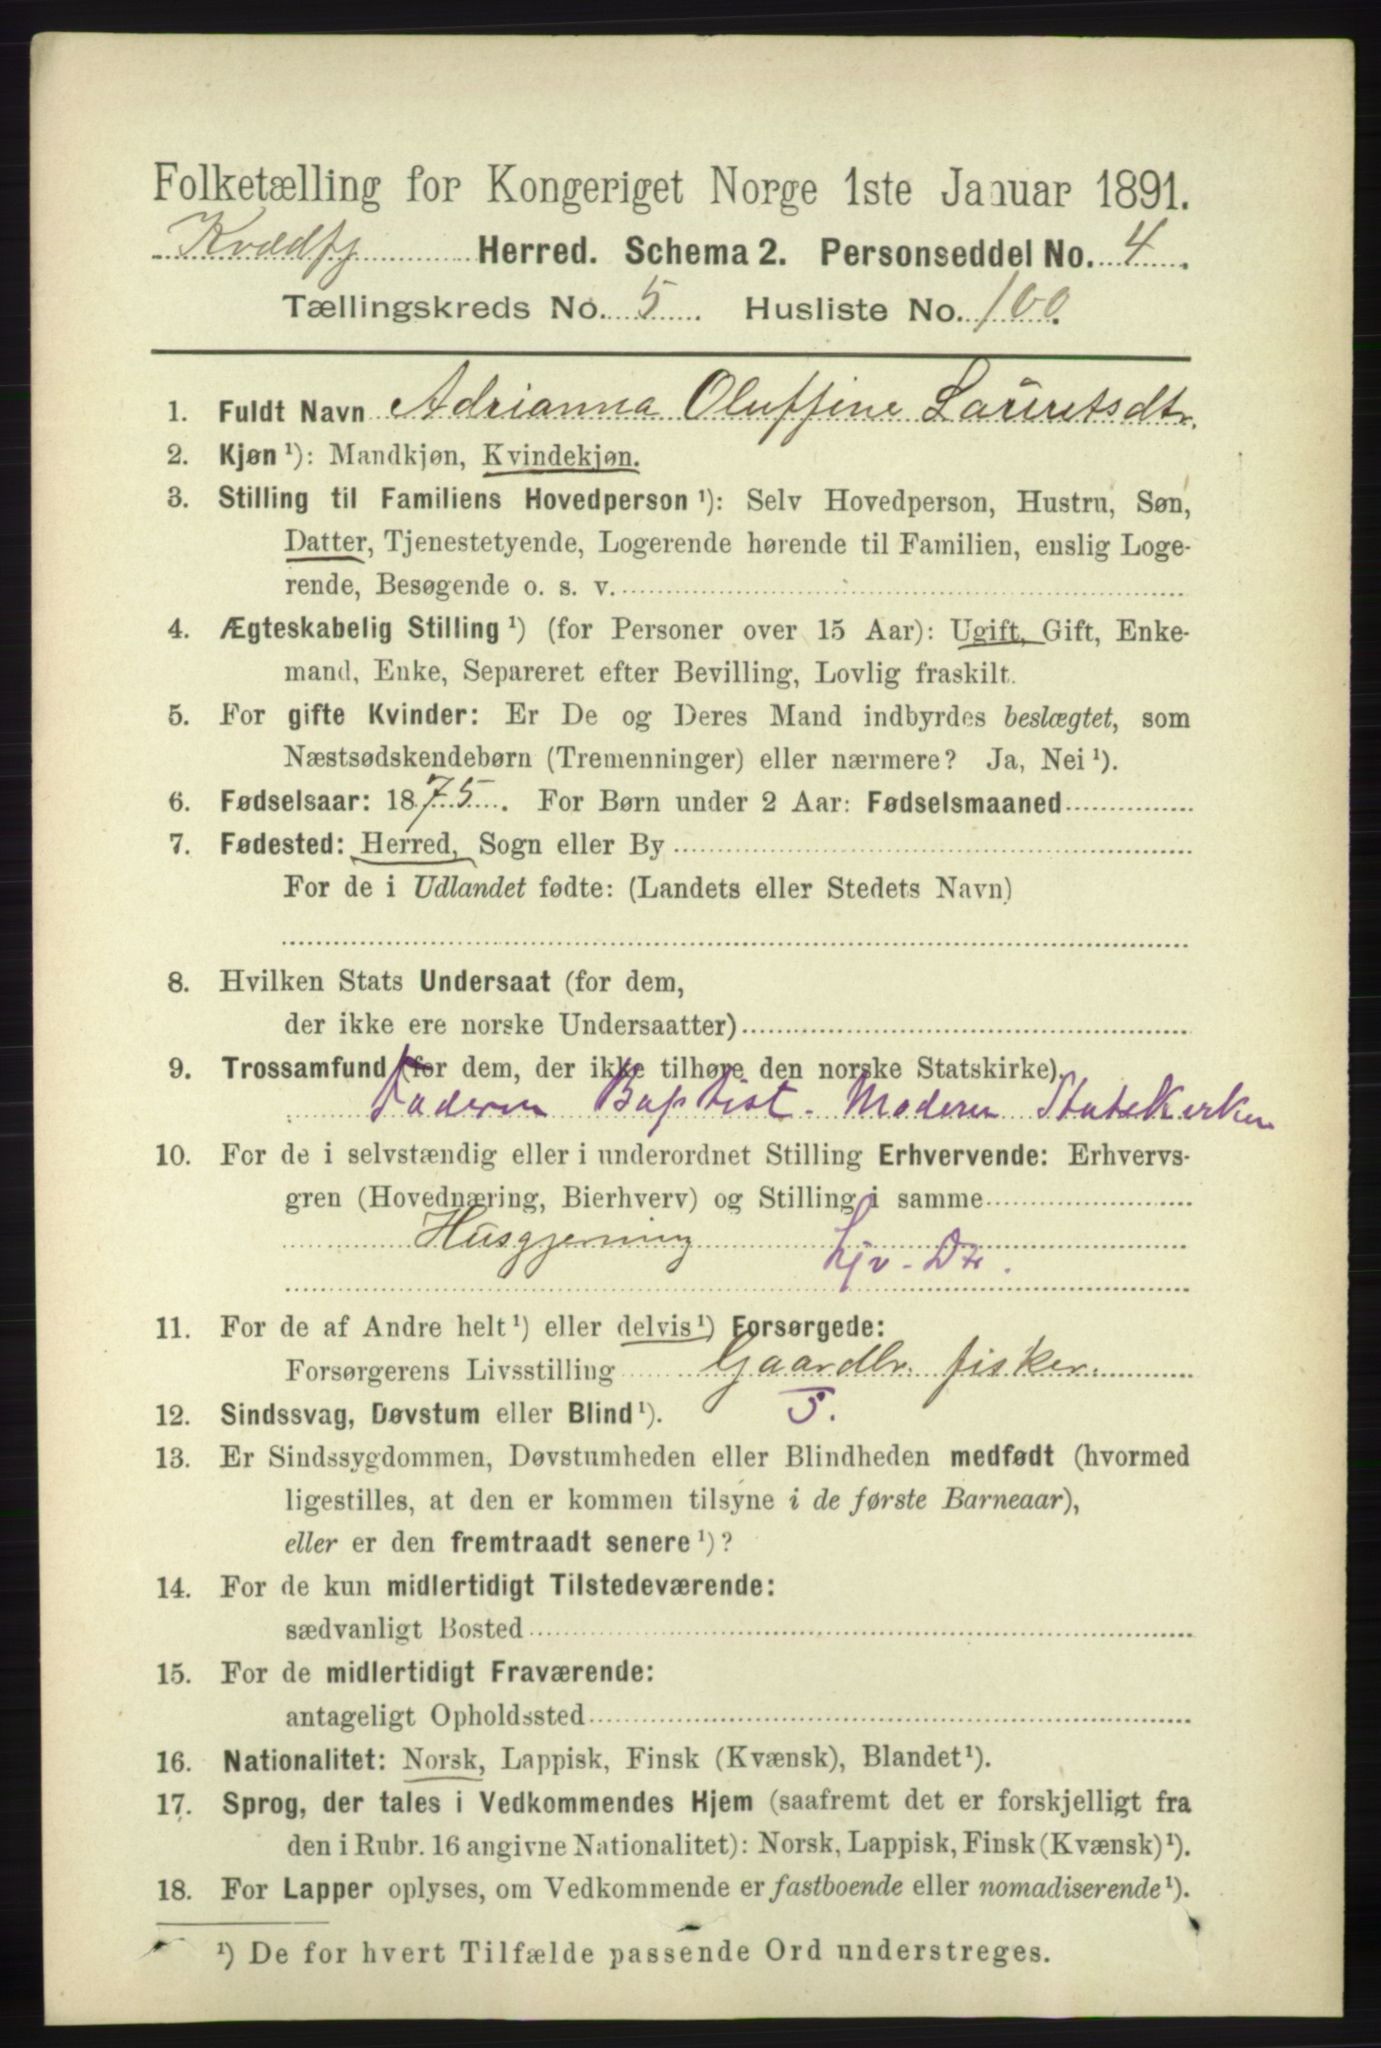 Folketælling for Kongeriget Norge 1ste Januar 1891.
Kvædfj Herred. Schema 2. Personseddel No. 4
Tællingskreds No. 5 Husliste No. 100
1. Fuldt Navn Adrianna Oluffine Lauritsdtr.
2. Kjøn ¹): Mandkjøn, Kvindekjøn.
3. Stilling til Familiens Hovedperson ¹): Selv Hovedperson, Hustru, Søn,
Datter, Tjenestetyende, Logerende hørende til Familien, enslig Loge-
rende, Besøgende o. s. v.
4. Ægteskabelig Stilling ¹) (for Personer over 15 Aar): Ugift, Gift, Enke-
mand, Enke, Separeret efter Bevilling, Lovlig fraskilt.
5. For gifte Kvinder: Er De og Deres Mand indbyrdes beslægtet, som
Næstsødskendebørn (Tremenninger) eller nærmere? Ja, Nei ¹).
6. Fødselsaar: 1875. For Børn under 2 Aar: Fødselsmaaned
7. Fødested: Herred, Sogn eller By
For de i Udlandet fødte: (Landets eller Stedets Navn)
8. Hvilken Stats Undersaat (for dem,
der ikke ere norske Undersaatter)
9. Trossamfund (for dem, der ikke tilhøre den norske Statskirke)
Faderen Baptist. Moderen Statskirken
10. For de i selvstændig eller i underordnet Stilling Erhvervende: Erhvervs-
gren (Hovednæring, Bierhverv) og Stilling i samme
Husgjerning Ljv. Dtr.
11. For de af Andre helt ¹) eller delvis ¹) Forsørgede:
Forsørgerens Livsstilling Gaardbr. fisker.
12. Sindssvag, Døvstum eller Blind ¹). 5.
13. Er Sindssygdommen, Døvstumheden eller Blindheden medfødt (hvormed
ligestilles, at den er kommen tilsyne i de første Barneaar),
eller er den fremtraadt senere ¹)?
14. For de kun midlertidigt Tilstedeværende:
sædvanligt Bosted
15. For de midlertidigt Fraværende:
antageligt Opholdssted
16. Nationalitet: Norsk, Lappisk, Finsk (Kvænsk), Blandet ¹).
17. Sprog, der tales i Vedkommendes Hjem (saafremt det er forskjelligt fra
den i Rubr. 16 angivne Nationalitet): Norsk, Lappisk, Finsk (Kvænsk) ¹).
18. For Lapper oplyses, om Vedkommende er fastboende eller nomadiserende ¹).
¹) De for hvert Tilfælde passende Ord understreges.